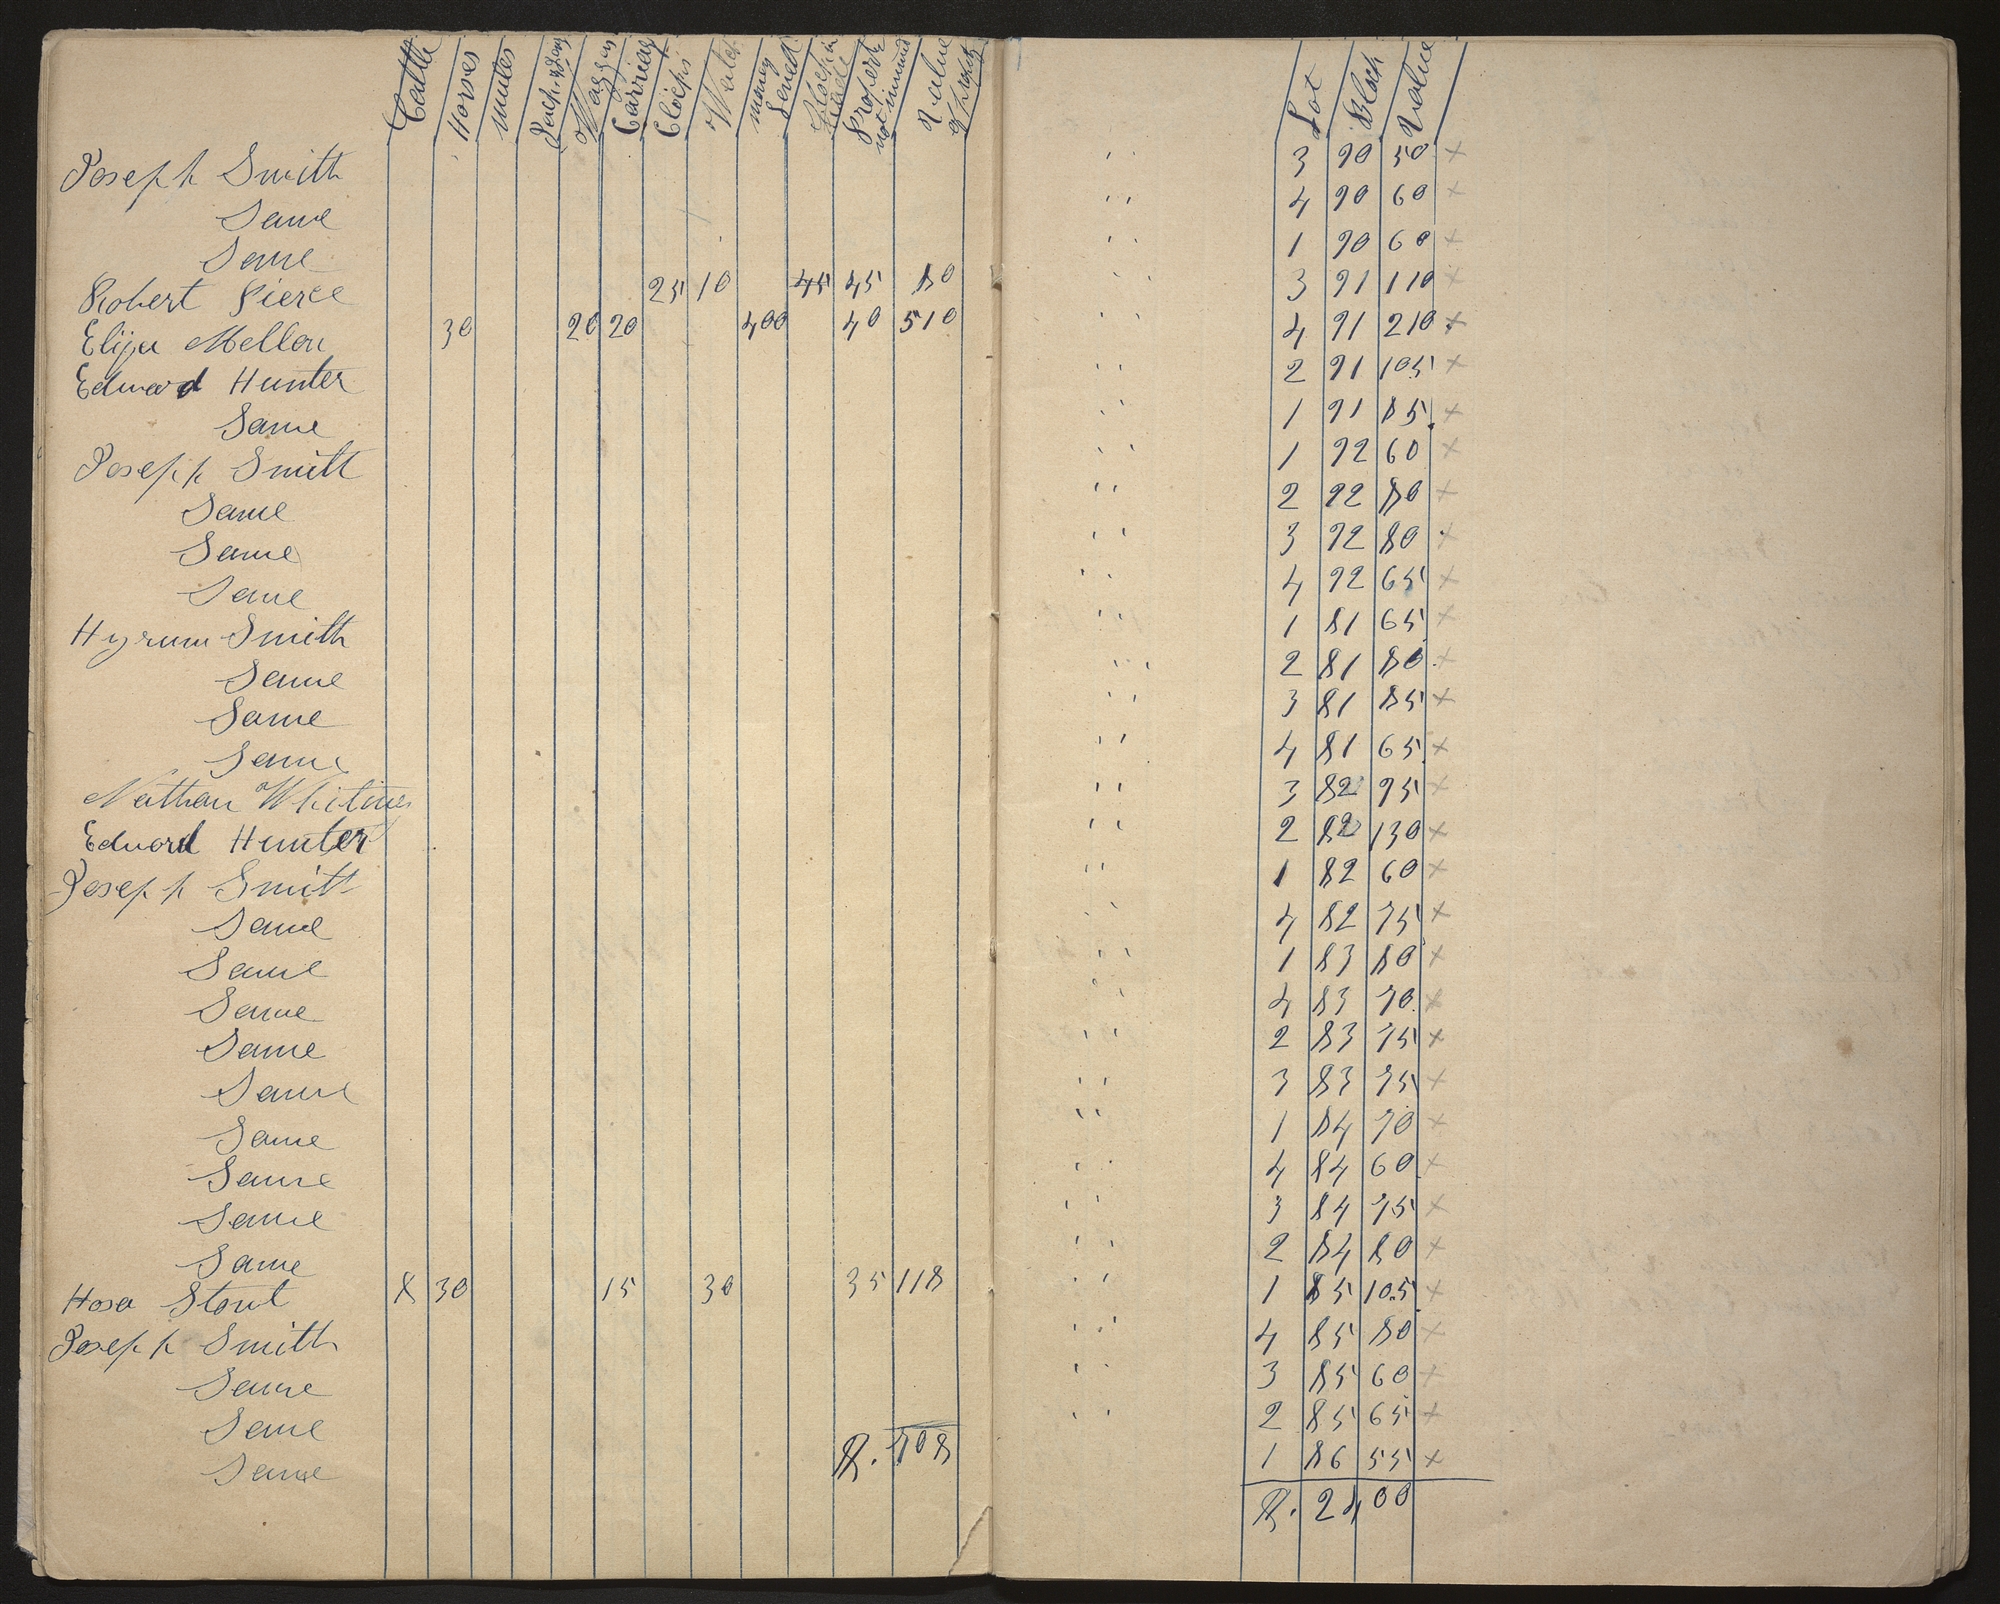 Cattle Horses mules Jack & Jeny Waggons Carriag Clocks Watch money Lened Stock in trade Property not enumd Value of property Lot Block Value
Joseph Smith 3 90 50 x
Same 4 90 60 x
Same 1 90 60 x
Robert Pierce 25 10 45 45 80 3 91 110 x
Elija Mellon 30 20 20 400 40 510 4 91 210 x
Edward Hunter 2 91 105 x
Same 1 91 85 x
Joseph Smith 1 92 60 x
Same 2 92 80 x
Same 3 92 80 x
Same 4 92 65 x
Hyrum Smith 1 81 65 x
Same 2 81 80 x
Same 3 81 85 x
Same 4 81 65 x
Nathan Whitney 3 82 95 x
Edward Hunter 2 82 130 x
Joseph Smith 1 82 60 x
Same 4 82 75 x
Same 1 83 80 x
Same 4 83 70 x
Same 2 83 75 x
Same 3 83 75 x
Same 1 84 70 x
Same 4 84 60 x
Same 3 84 75 x
Same 2 84 80 x
Hosa Stout 8 30 15 30 35 118 1 85 105 x
Joseph Smith 4 85 80 x
Same 3 85 60 x
Same 2 85 65 x
Same 1 86 55 x
708
2400